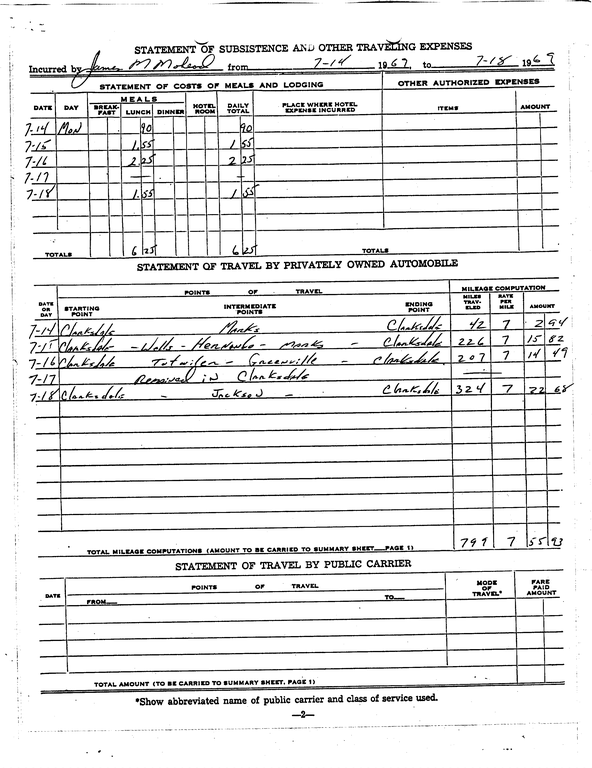 STATEMENT OF SUBSISTENCE AND OTHER TRAVELING EXPENSES
Incurred by James M Mcleod from 7-14 1967 to 7-18 1967
STATEMENT OF COSTS OF MEALS AND LODGING OTHER AUTHORIZED EXPENSES
DATE DAY MEALS BREAK-FAST LUNCH DINNER HOTEL ROOM DAILY TOTAL PLACE WHERE HOTEL EXPENSE INCURRED ITEMS AMOUNT
7-14 Mon 90 90
7-15 1.55 1 55
7-16 2.25 2 25
7-17 — —
7-18 1.55 1 55
TOTALS 6 25 6 25 TOTALS
STATEMENT OF TRAVEL BY PRIVATELY OWNED AUTOMOBILE
POINTS OF TRAVEL MILEAGE COMPUTATION
DATE OR DAY STARTING POINT INTERMEDIATE POINTS ENDING POINT MILES TRAV-ELED RATE PER MILE AMOUNT
7-14 Clarksdale Marks Clarksdale 42 7 2 94
7-15 Clarksdale - Walls - Hernando - Marks - Clarksdale 226 7 15 82
7-16 Clarksdale Tutwiler - Greenville - Clarksdale 207 7 14 49
7-17 Remained in Clarksdale —
7-18 Clarksdale - Jackson - Clarksdale 324 7 22 68
TOTAL MILEAGE COMPUTATIONS (AMOUNT TO BE CARRIED TO SUMMARY SHEET—PAGE 1) 799 7 55 93
STATEMENT OF TRAVEL BY PUBLIC CARRIER
DATE POINTS OF TRAVEL MODE OF TRAVEL* FARE PAID AMOUNT
FROM— TO—
TOTAL AMOUNT (TO BE CARRIED TO SUMMARY SHEET, PAGE 1)
*Show abbreviated name of public carrier and class of service used.
—2—